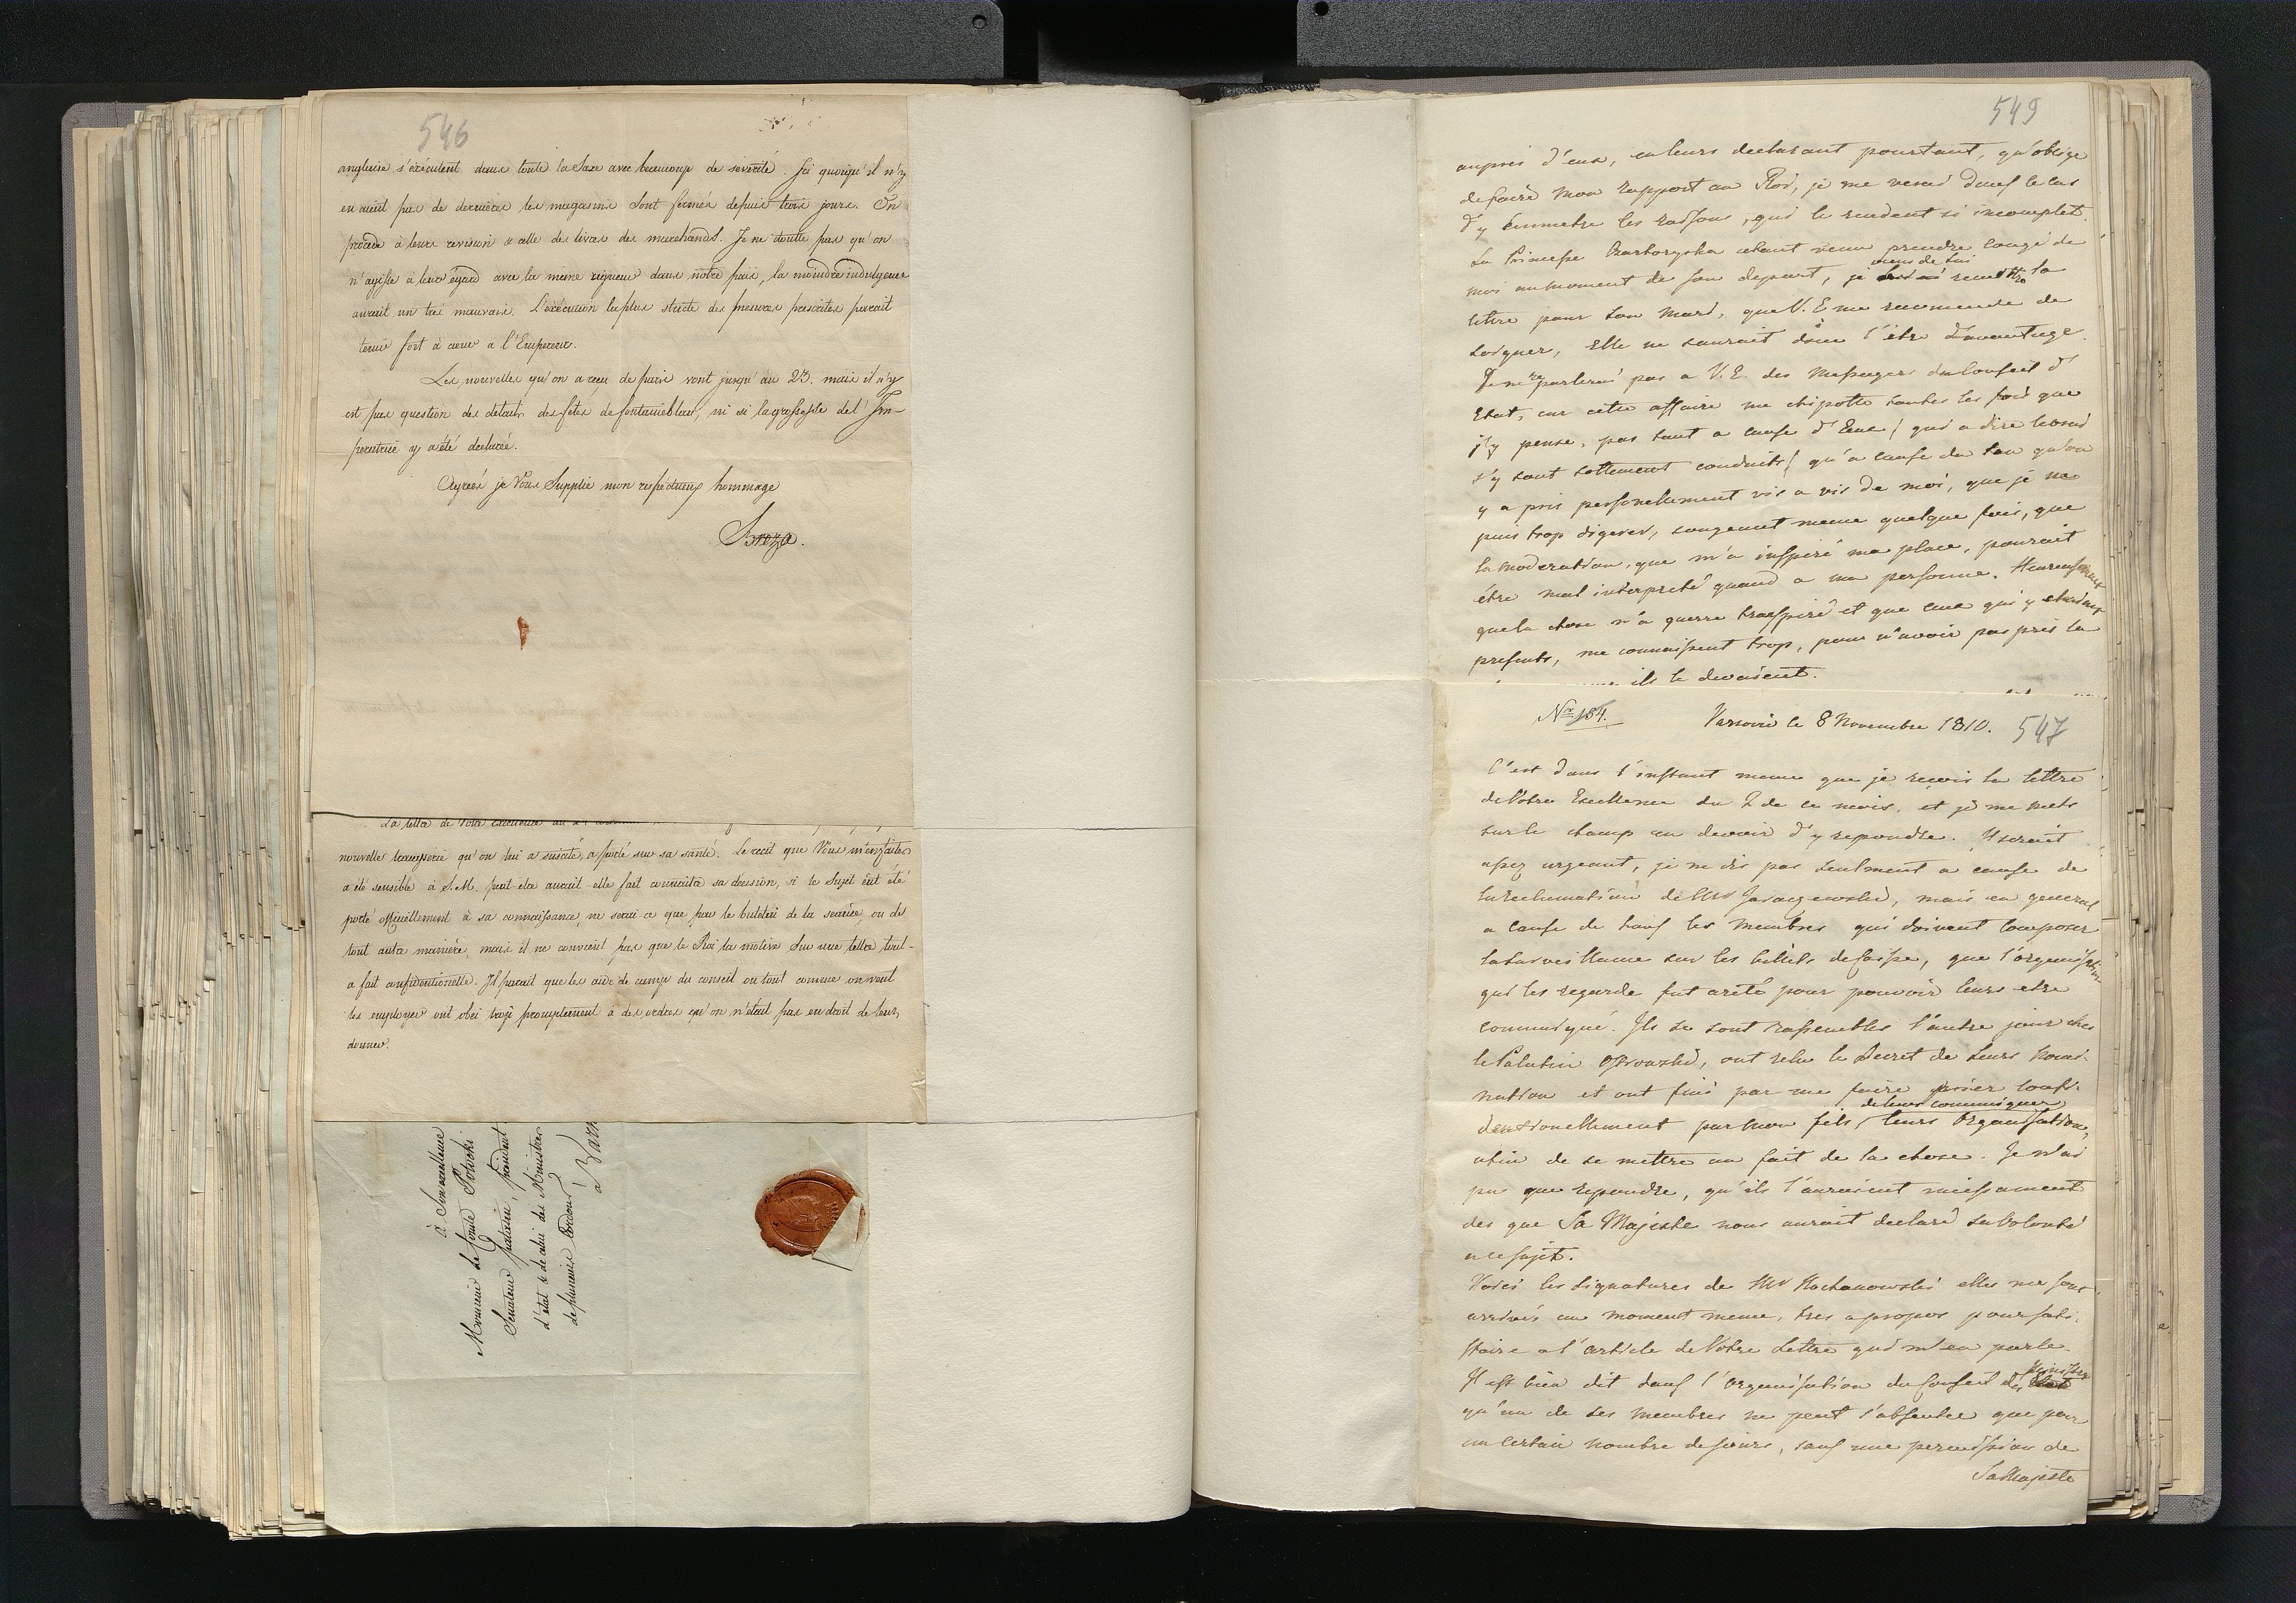 546
anglaise s'exécutent dans toute la Saxe avec beaucoup de severité. Ici quoiqu'il n'y
en avait pas de derrieres les magasins sont fermés depuis trois jours. On
procede à leurs revision & celle des livres des marchands. Je ne doutte pas qu'on
n'agisse à leur égard avec la même rigueur dans notre païs, la moindre indulgence
aurait un trés mauvais. L'exécution la plus stricte des mesures prescrites parait
tenir fort à cœur a l'Empereur.
Les nouvelles qu'on a reçu de paris vont jusqu'au 25. mais il n'y
est pas question des details des fêtes de fontainebleau, ni si la grossesse de l'Im-
peratrice y a été declarée.
Agréés je Vous Supplie mon respectueux hommage
Breza.
La lettre de Votre Excellence du
nouvelle tracasserie qu'on lui a suscité, a porté sur sa santé. Le recit que Vous m'en faites
a été sensible à S.M. peut etre aurait-elle fait connaitre sa décision, si le Sujet eût été
porté officiellement à sa connaissance, ne serai-ce que par le buletin de la seance, ou de
tout autre maniere, mais il ne convient pas que le Roi la motive sur une lettre tout-
a fait confidentionelle. Il parait que les aide de camps du conseil ou tout comme on veut
les employer ont obei trop promptement à des ordres qu'on n'était pas en droit de leur
donner.
à Son excellence
Monsieur le Comte Potocki
Senateur palatin, président
d'état & de celui des Ministres
de plusieurs Cordons
à Vars
549
aupres d'eux, en leurs declarant pourtant, qu'obligé
de faire mon rapport au Roi, je me verrai dans le cas
d'y emmetre les raisons, qui le rendent si incomplet.
La Princesse Czartoryska etant venu prendre congé de
moi au moment de son depart, je viens de lui remettre la
lettre pour son mari, que V. E me recomende de
soigner, elle ne saurait donc l'être d'avantage.
Je ne parlerai pas a V. E. des Messagers du Conseil d'
Etat, car cette affaire me chipotte toutes les fois que
j'y pense, pas tant a cause d'Eux (qui a dire le vrai
s'y sont sottement conduits) qu'a cause du ton qu'on
y a pris personellement vis a vis de moi, que je ne
puis trop digerer, songeant meme quelque fois, que
la moderation, que m'a inspiré ma place, pourait
être mal interpreté quand a ma personne. Heureusement
que la chose n'a guerre transpiré et que ceux qui y etaient
presents, me connaissent trop, pour n'avoir pas pris la
ils le devaient.
Nro 184. Varsovie le 8 Novembre 1810. 547
C'est dans l'instant meme que je reçois la lettre
de Votre Excellence du 2 de ce mois, et je me mets
sur le champ en devoir d'y repondre. Il serait
assez urgeant, je ne dis pas seulment a cause de
la reclamation de Mr Jaraczewski, mais en general
a cause de tous les membres qui doivent composer
la surveillance sur les billets de caisse, que l'organisation
qui les regarde fut areté pour pouvoir leurs etre
communiqué. Ils se sont rassemblés l'autre jour chez
le Palatin Ostrowski, ont relu le Decret de leurs nomi-
nation et ont fini par me faire prier confi-
dentionellement par mon fils de leurs communiquer leurs organisation,
afin de se mettre au fait de la chose. Je n'ai
pu que repondre, qu'ils l'auraient incessament
des que Sa Majesté nous aurait declaré sa Volonté
a ce sujet.
Voici les signatures de Mr Kochanowski elles me sont
arrivés au moment meme, tres a propos pour satis-
ffaire a l'article de Votre Lettre qui m'en parle.
Il est bien dit dans l'organisation du Conseil des Ministres
qu'un de ses membres ne peut s'absenter que pour
un certain nombre de jours, sans une permission de
Sa Majesté